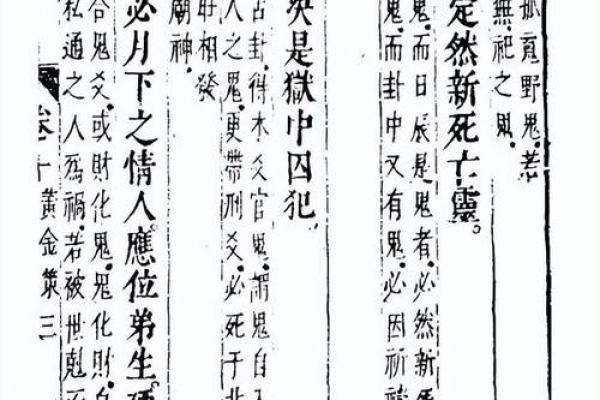 孤寃野鬼.若
無祀之鬼.
定然新死亡靈。
鬼.而日辰是鬼者.必然新
鬼.而卦中又有鬼.必因祈禱
是獄中囚犯.
占卦.得木爻官鬼.謂鬼自
人之鬼.更帶刑爻.必死于
相發
廟神.
必月下之情人。應位弟生
合鬼爻.或財化鬼.鬼化財.
私通之人爲禍.若被世剋
卷十 黃金策三